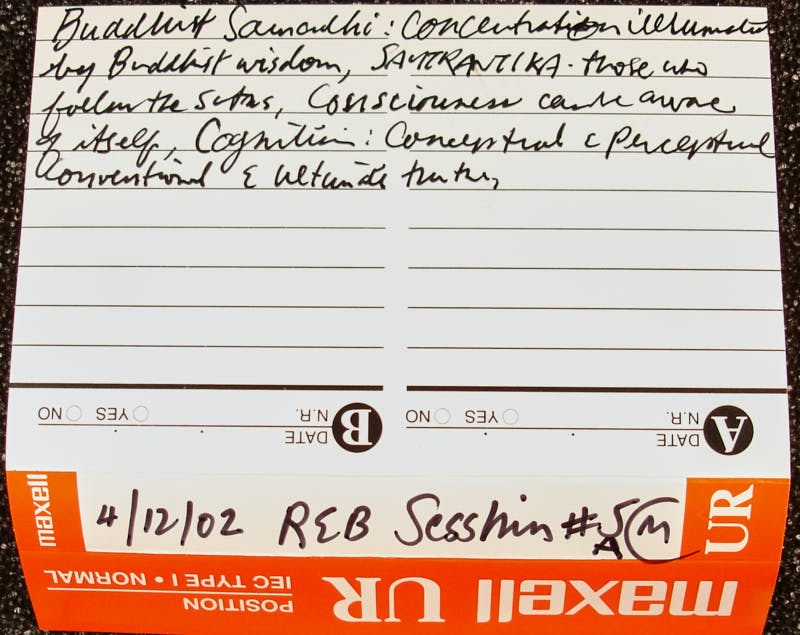 Buddhist Samadhi: Concentration illuminated
by Buddhist wisdom, SAUTRANTIKA - those who
follow the sutras, Consciousness can be aware
of itself, Cognition: Conceptual & Perceptual
Conventional & ultimate truths,
A DATE N.R. YES NO
B DATE N.R. YES NO
maxell 4/12/02 REB Sesshin #5 M UR
A
maxell UR POSITION IEC TYPE I • NORMAL